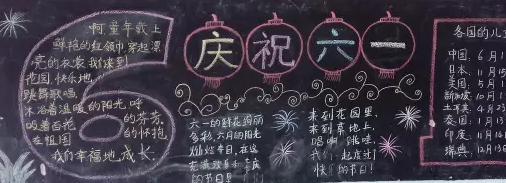 啊童年戴上
鲜艳的红领巾穿起漂
亮的衣裳我们来到
花园 快乐地
跳舞歌唱
沐浴着温暖的阳光,呼
吸着百花的芬芳,
在祖国的怀抱
我们幸福地成长.
庆祝六一
六一的鲜花绚丽
多彩,六月的阳光
灿烂夺目,在这
的节日!
来到花园里,
来到草地上,
唱啊跳哇,
我们一起度过
快乐的节日!
各国的儿
中国:6月1
日本:11月15
美国:5月1
新加坡:10月1
土耳其:4月23
泰国:1月13
印度:11月14
瑞典:12月13日